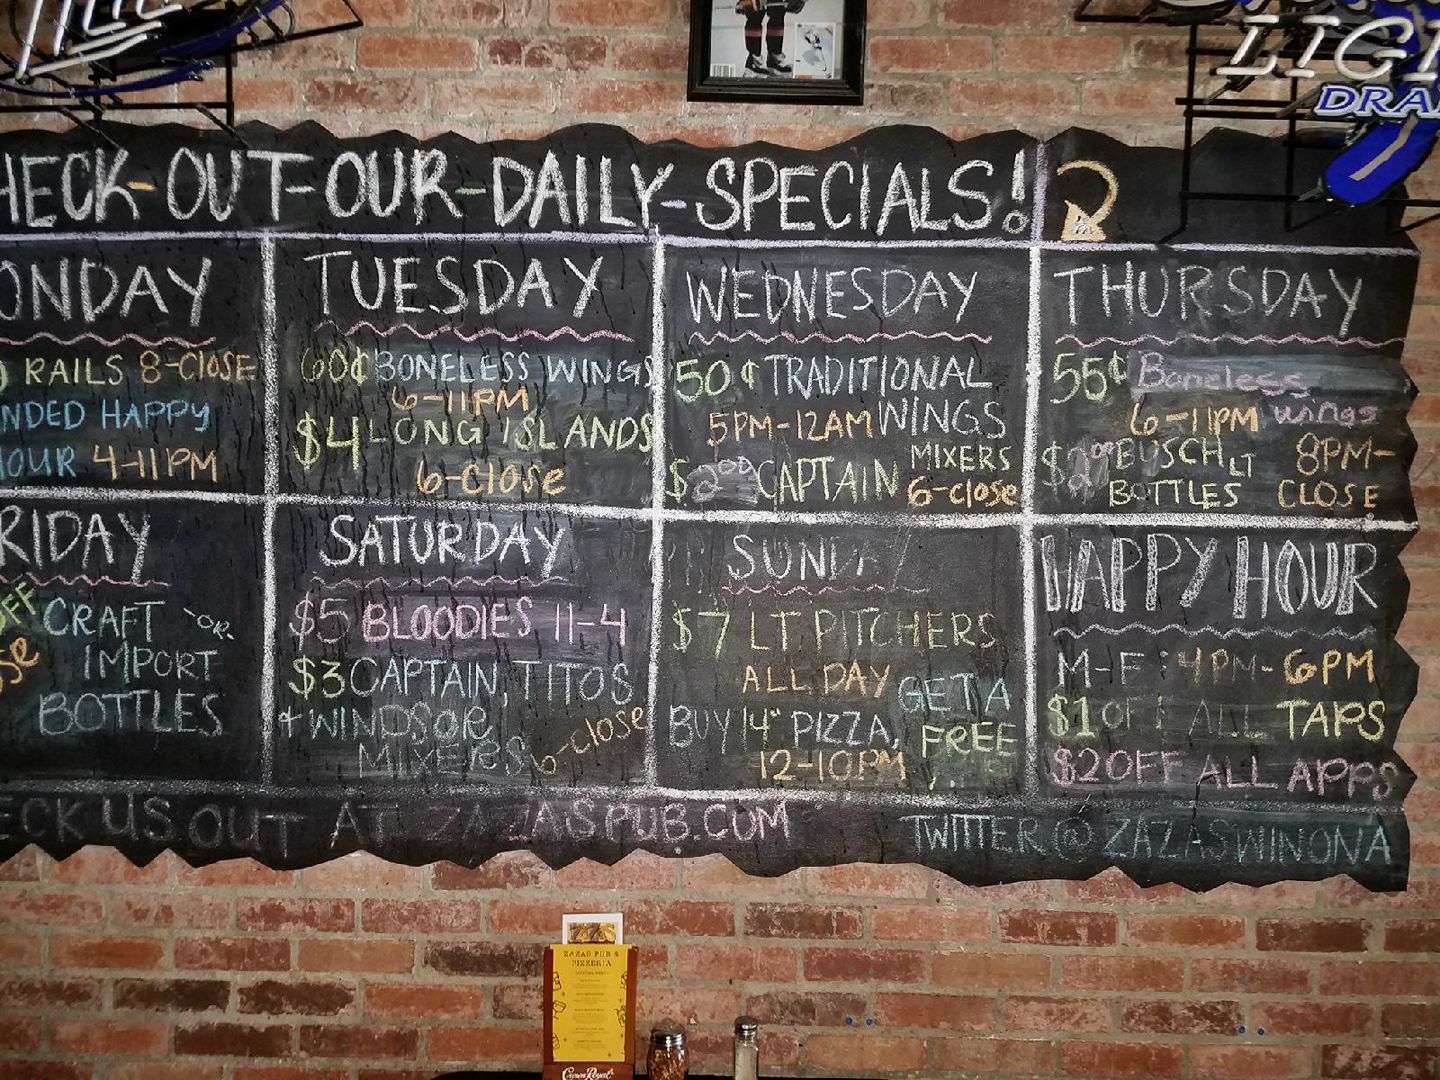 LIGHT
DRAFT
CHECK-OUT-OUR-DAILY-SPECIALS!
MONDAY
RAILS 8-CLOSE
EXTENDED HAPPY
HOUR 4-11PM
TUESDAY
60¢ BONELESS WINGS
6-11PM
$4 LONG ISLANDS
6-close
WEDNESDAY
50¢ TRADITIONAL
5PM-12AM WINGS
$2⁰⁰ CAPTAIN MIXERS
6-close
THURSDAY
55¢ Boneless
6-11PM wings
$2⁰⁰ BUSCH LT 8PM-
BOTTLES CLOSE
FRIDAY
OFF CRAFT -OR-
IMPORT
BOTTLES
SATURDAY
$5 BLOODIES 11-4
$3 CAPTAIN, TITOS
+ WINDSOR 6-close
MIXERS
SUNDAY
$7 LT PITCHERS
ALL DAY
BUY 14" PIZZA, GET A
FREE
12-10PM
HAPPY HOUR
M-F: 4PM-6PM
$1 OFF ALL TAPS
$2 OFF ALL APPS
CHECK US OUT AT ZAZASPUB.COM
TWITTER@ZAZASWINONA
ZAZAS PUB &
PIZZERIA
Crown Royal